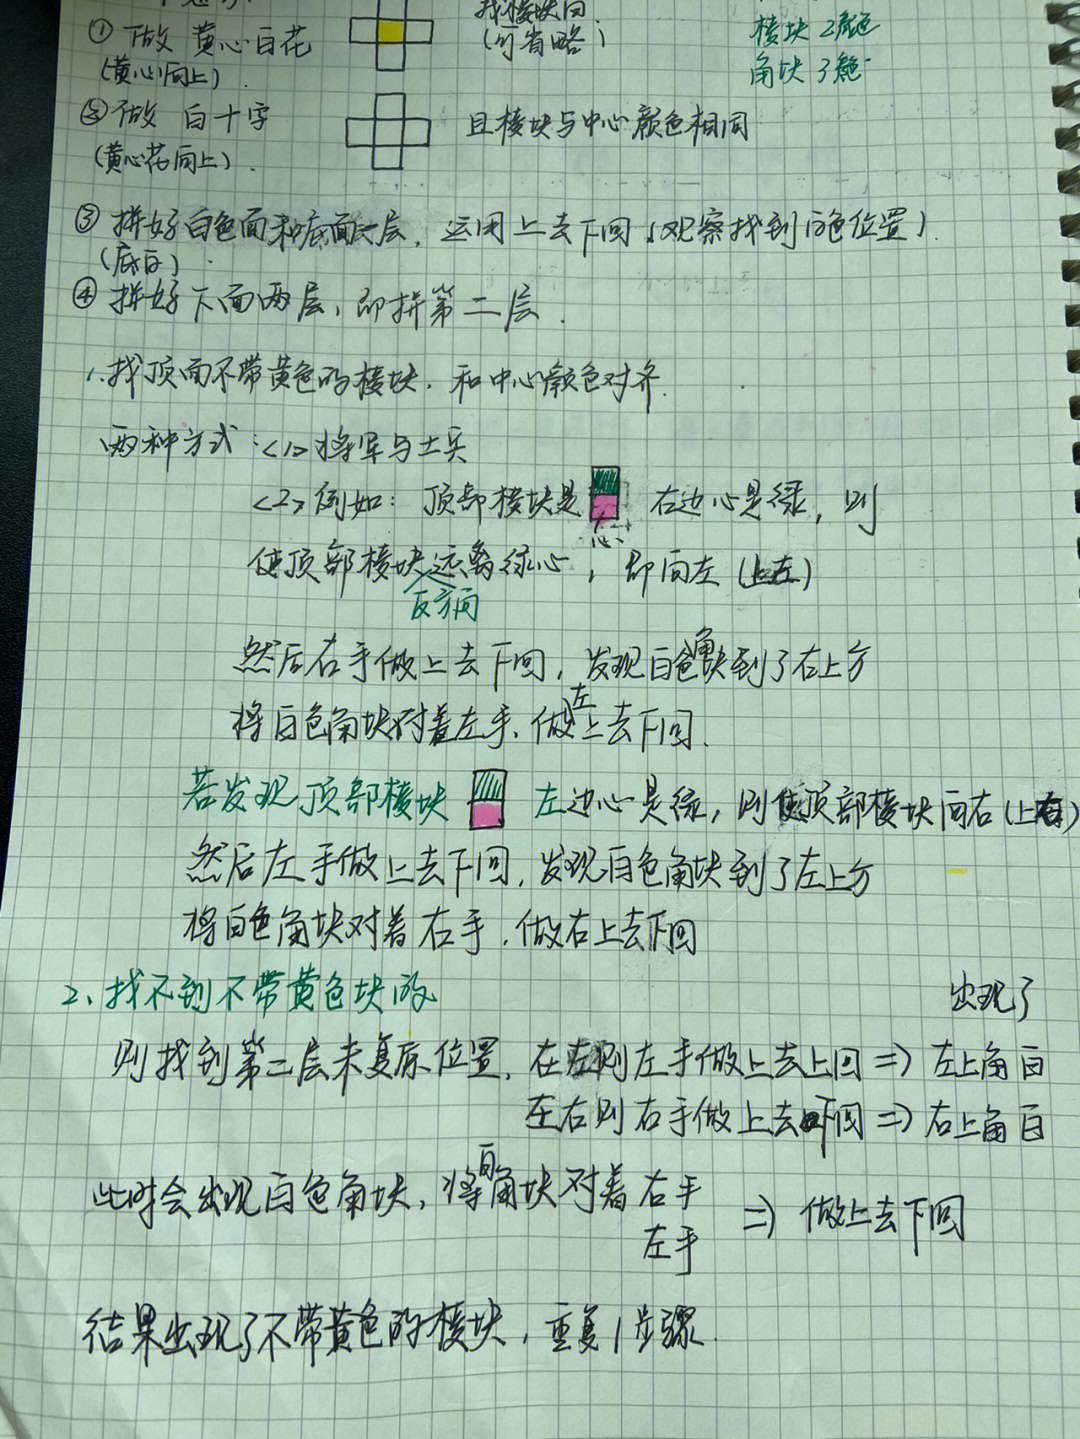 ① 做 黄心白花
找棱块白
(可省略)
棱块 2颜色
(黄心向上)
角块 3颜色
② 做 白十字 且棱块与中心颜色相同
(黄心花向上)
③ 拼好白色面和底面一层，运用上去下回(观察找到白色位置)
(底白)
④ 拼好下面两层，即拼第二层.
1.找顶面不带黄色的棱块.和中心颜色对齐.
两种方式:<1>将军与士兵
<2>例如: 顶部棱块是 右边心是绿，则
心
使顶部棱块远离绿心，即向左(上左)
反方向
然后右手做上去下回，发现白色角块到了右上方
将白色角块对着左手.做左上去下回.
若发现顶部棱块 左边心是绿，则使顶部棱块向右(上右)
然后左手做上去下回，发现白色角块到了左上方
将白色角块对着右手.做右上去下回
2、找不到不带黄色块的
出现了
则找到第二层未复原位置，在左则左手做上去上回⇒左上角白
在右则右手做上去下回⇒右上角白
此时会出现白色角块，将白角块对着右手
左手
⇒ 做上去下回
结果出现了不带黄色的棱块，重复1步骤.